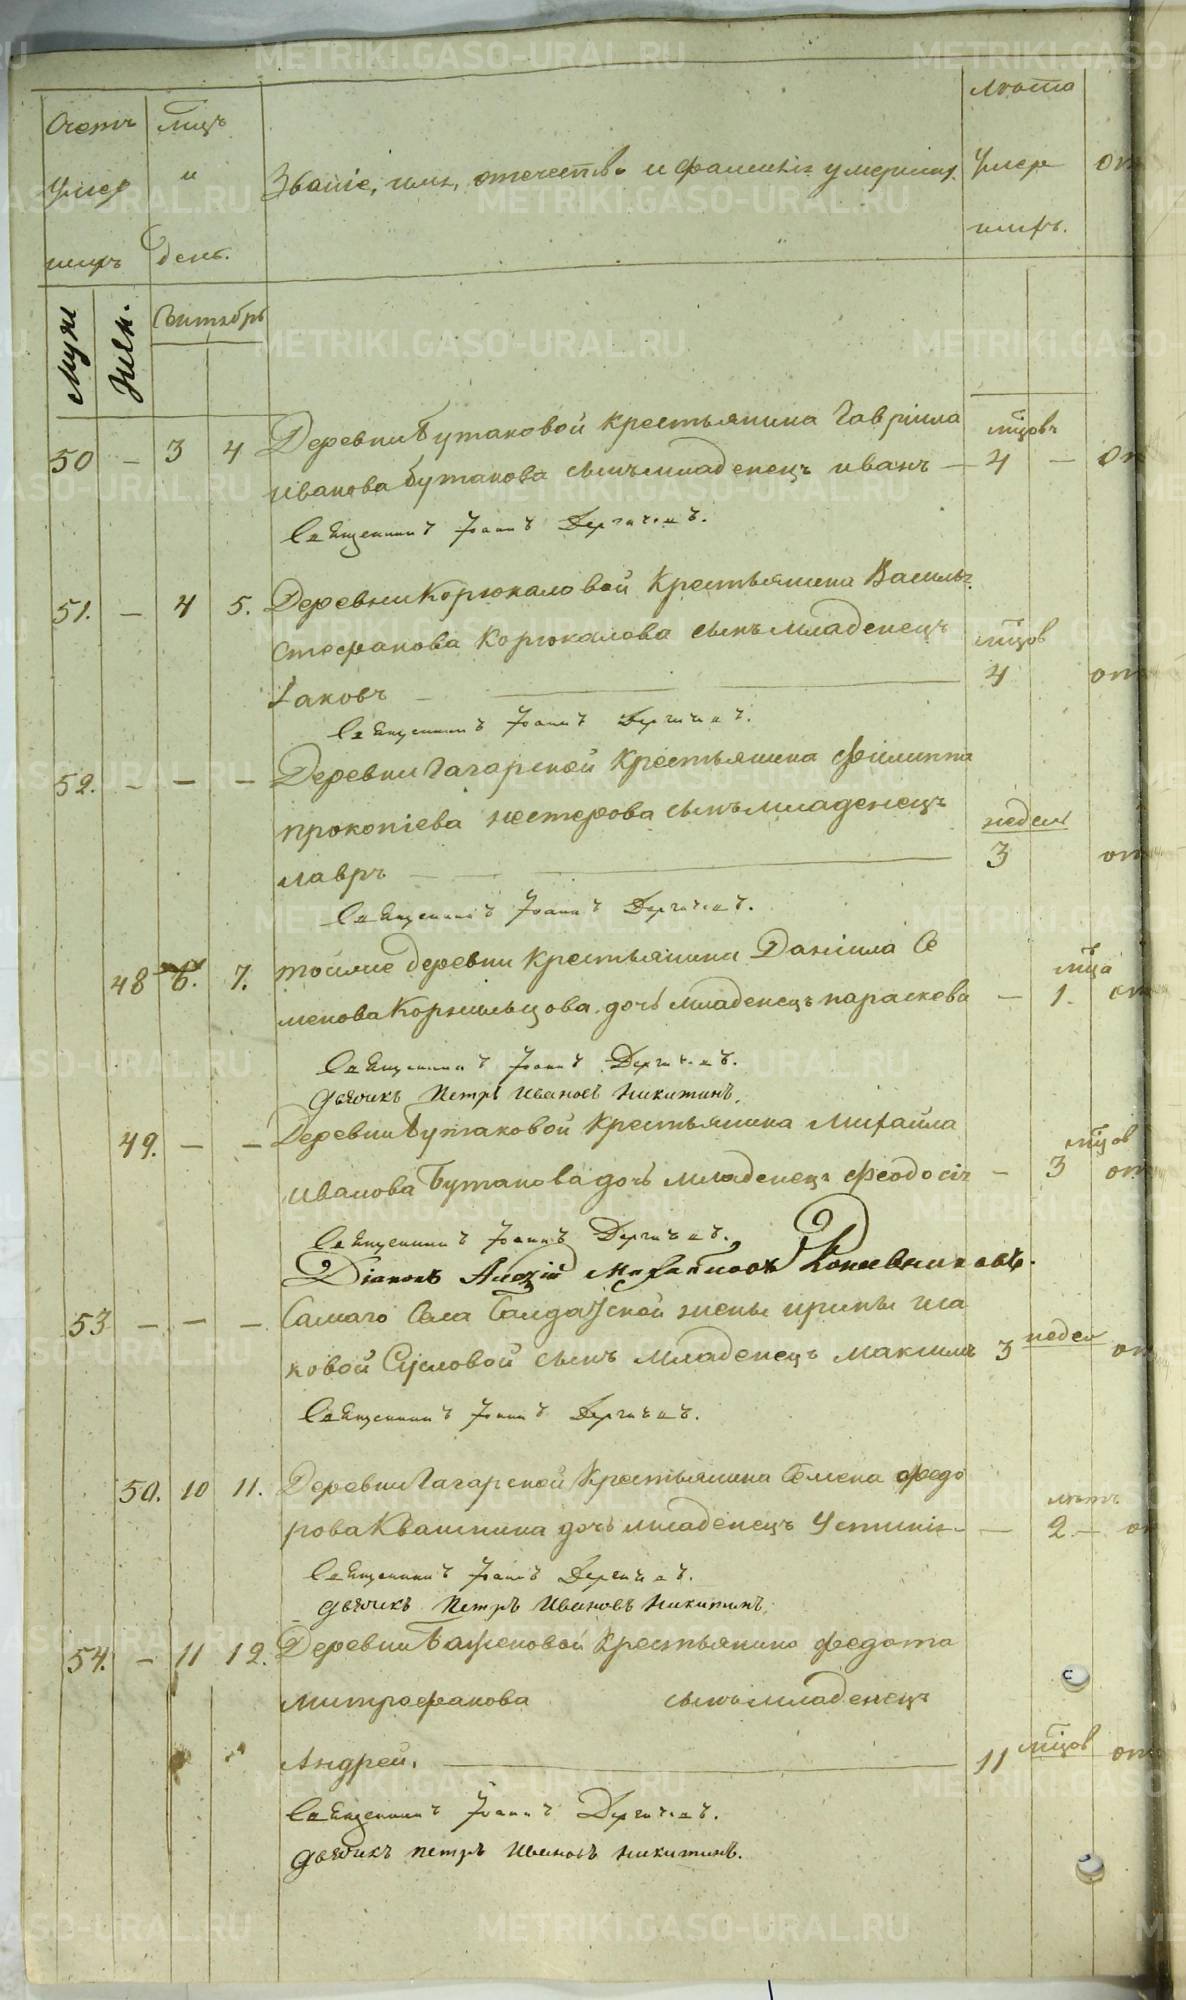 Счетъ
умер
шихъ
Мцъ
и
день.
Званіе, имя, отечество и фамилія умерших.
Лѣта
умер
шихъ.
от
Муж
Жен.
Сентябрь
50 — 3 4 Деревни Бутаковой крестьянина Гавріила
Иванова Бутакова сынъ младенецъ Иванъ —
мцовъ
4 — от
Священникъ Іоаннъ Дергачевъ.
51. — 4 5. Деревни Корюкаловой крестьянина Василья
Стефанова Корюкалова сынъ младенецъ
Іаковъ —
мцов
4 от
Священникъ Іоаннъ Дергачевъ.
52. — — — Деревни Гагарской крестьянина Филиппа
Прокопіева Нестерова сынъ младенецъ
Лавръ —
недел
3 от
Священникъ Іоаннъ Дергачевъ.
48 6. 7. Тойже деревни крестьянина Даніила Се
менова Корнильцова дочь младенецъ Параскева
— мца
1. от
Священникъ Іоаннъ Дергачевъ.
Дьячикъ Петръ Ивановъ Никитинъ.
49. — — Деревни Бутаковой крестьянина Михайла
Иванова Бутакова дочь младенецъ Феодосія
— мцов
3 от
Священникъ Іоаннъ Дергачевъ.
Діаконъ Алезій Михайловъ Кожевниковъ.
53 — — — Самаго Села Салдатской жены Ирины Иа
ковой Сусловой сынъ младенецъ Максимъ
3 недел от
Священникъ Іоаннъ Дергачевъ.
50. 10 11. Деревни Гагарской крестьянина Семена Федо
рова Квашнина дочь младенецъ Устинія —
— лѣтъ
2 — от
Священникъ Іоаннъ Дергачевъ.
Дьячикъ Петръ Ивановъ Никитинъ.
54. — 11 12. Деревни Баженовой крестьянина Федота
Митрофанова сынъ младенецъ
Андрей.
11 мцов от
Священникъ Іоаннъ Дергачевъ.
Дьячикъ Петръ Ивановъ Никитинъ.
METRIKI.GASO-URAL.RU